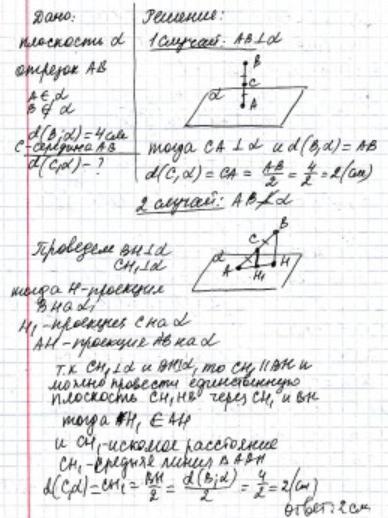 Дано:
плоскость α
отрезок АВ
А ∈ α
В ∉ α
d(B;α) = 4см
С-середина АВ
d(C,α) - ?
Решение:
1 случай: АВ ⊥ α
α
B
C
A
тогда СА ⊥ α и d(B;α) = АВ
d(C,α) = CA = AB/2 = 4/2 = 2(см)
2 случай: АВ ⊥̸ α
α
B
C
A
H₁
H
Проведем ВН ⊥ α
СН₁ ⊥ α
тогда Н-проекция
В на α,
Н₁-проекция С на α
АН-проекция АВ на α
т.к СН₁ ⊥ α и ВН ⊥ α, то СН₁ || ВН и
можно провести единственную
плоскость СН₁НВ через СН₁ и ВН
тогда Н₁ ∈ АН
и СН₁-искомое расстояние
СН₁-средняя линия в АВН
d(C,α) = CH₁ = BH/2 = d(B;α)/2 = 4/2 = 2(см)
Ответ: 2 см